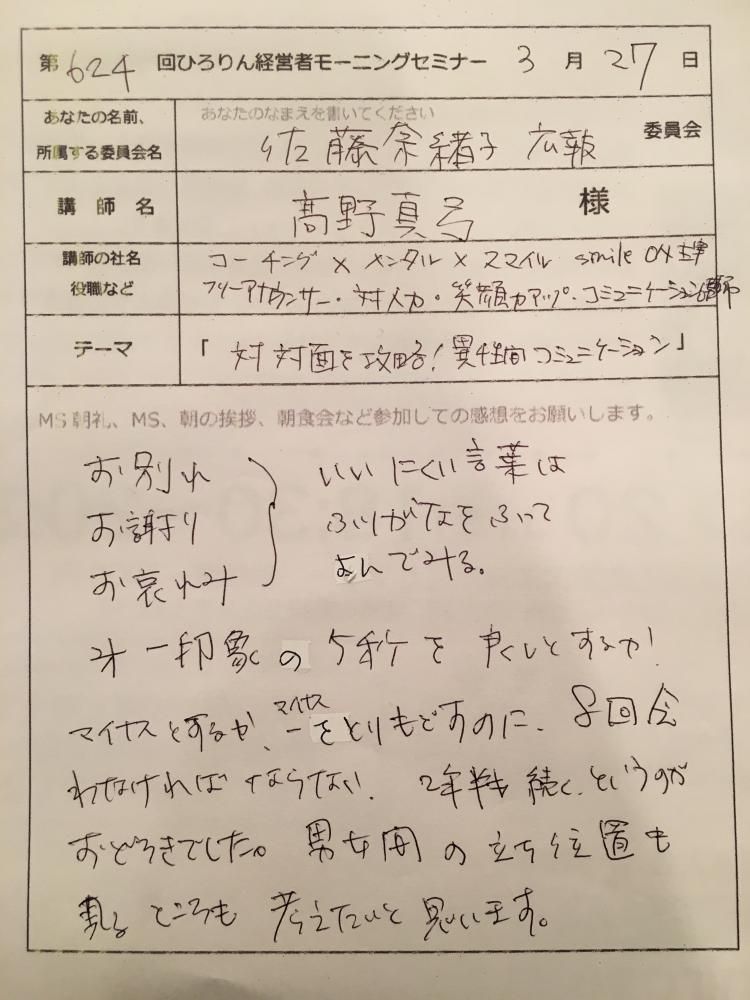 第624回ひろりん経営者モーニングセミナー 3月27日
あなたの名前、
所属する委員会名
あなたのなまえを書いてください
佐藤奈緒子 広報 委員会
講師名
髙野真弓 様
講師の社名
役職など
コーチング×メンタル×スマイル smile
フリーアナウンサー・対人力・笑顔力アップ・コミュニケーション
テーマ
「対対面を攻略!異性間コミュニケーション」
MS朝礼、MS、朝の挨拶、朝食会など参加しての感想をお願いします。
お別れ
お謝り
お哀れみ
いいにくい言葉は
ふりがなをふって
よんでみる。
才一印象の5秒を良くしとするか!
マイナスとするか、マイナス
ーをとりもどすのに、8回会
わなければならない。2年半も続く、というのが
おどろきでした。男女間の立ち位置も
見るところも考えたいと思います。